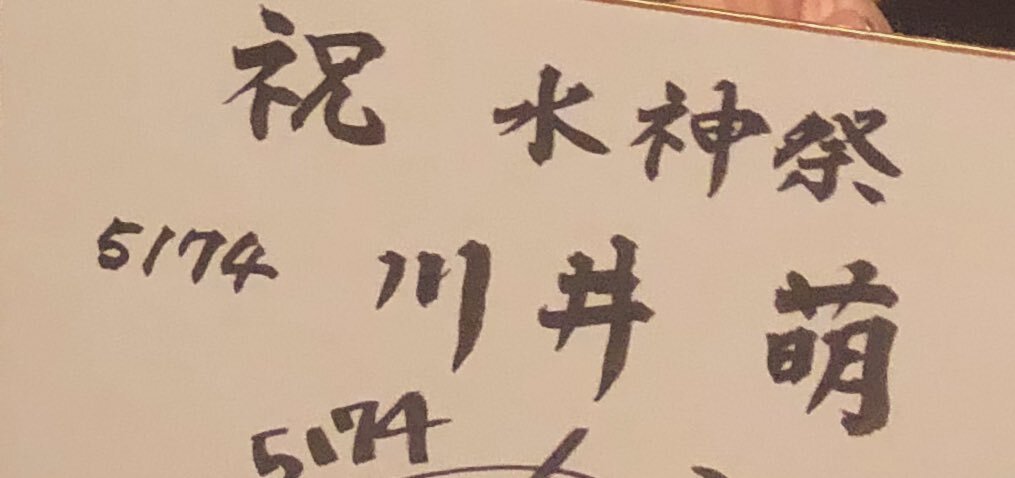 祝 水神祭
5174 川井 萌
5174